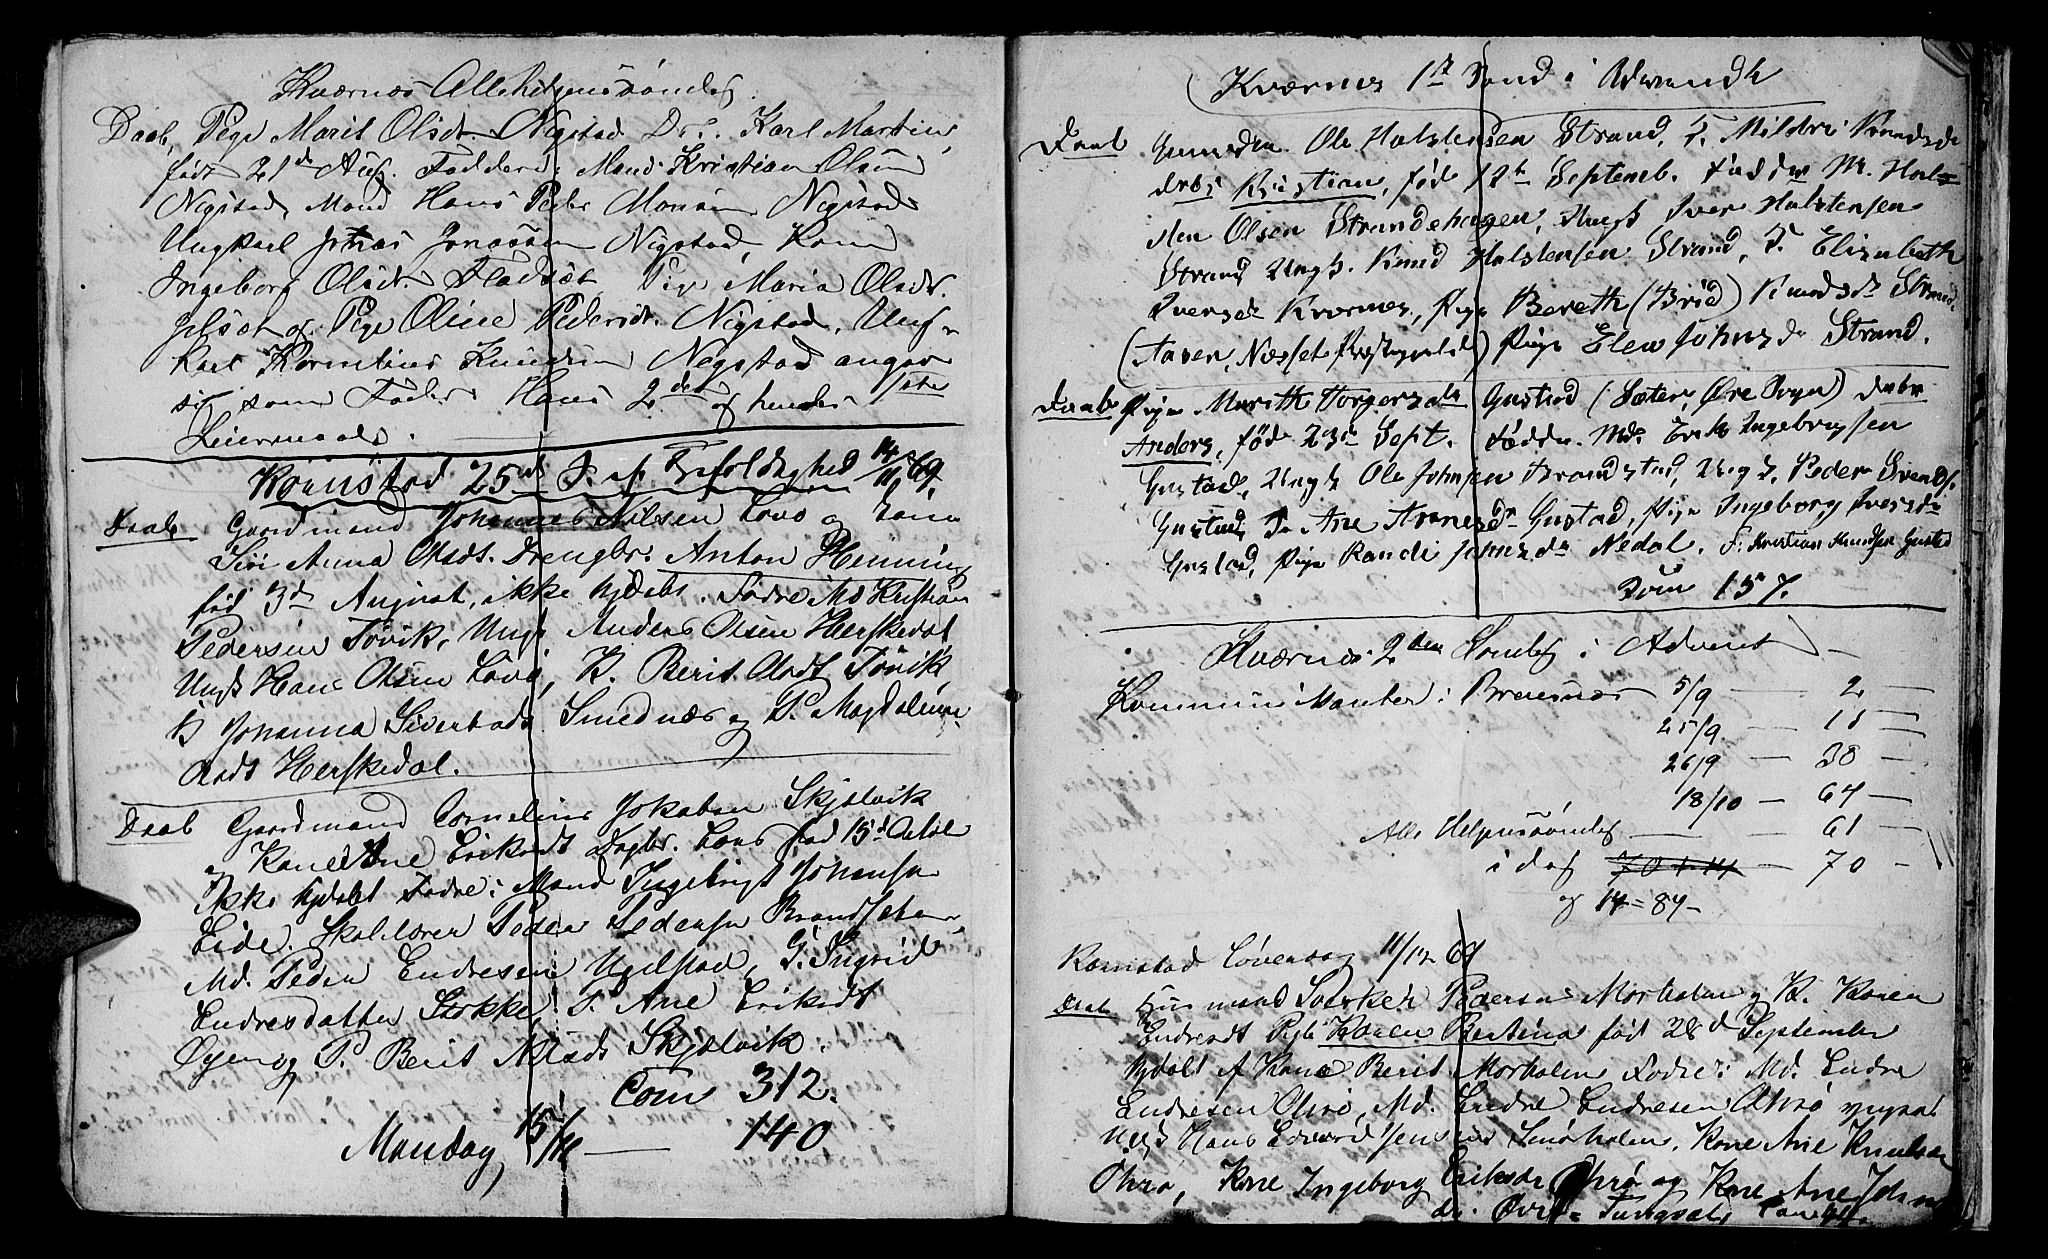 Kværnes Allehelgenssøndag.
Daab, Pige Marit Olsdt. Nigstad Dr. Karl Martin,
født 21de Aug. Faddere: Mand Kristian Olsen
Nigstad, Mand Hans Peder Nigstad
Ungkarl Jonas Jonassen Nigstad, Kone
Ingeborg Olsdt. Fladsæt, Pige Maria Olsdr.
og Pige Oline Pedersdt. Nigstad. Ung-
karl Kornelius Knudsen Nigstad angives
som Fader. Hans 2det og hendes 1ste
Leiermaal.
Kornstad 25de S. af Trefoldighed 14/11 69.
Daab Gaardmand Johannes Nilsen Lovo og Kone
Siri Anna Olsdt. Drengbr. Anton Henning
fød 3de August, ikke hjdøbt. Fadre Md Kristian
Pedersen Tøvik, Ungk Anders Olsen Herskedal
Ungk Hans Olsen Lovo, K. Berit Olsdt Tøvik
P Johanna Sivertsdt Smednæs og P. Magdalena
Herskedal.
Daab Gaardmand Cornelius Jakobsen Skjølvik
og Kone Ane Eriksdt Drgbr. Lars fød 15de Octob
Ikke hjdøbt Fadre: Mand Ingebrigt Johansen
Eide. Skolelærer Peder Pedersen Brandsæter,
Md. Peder Endresen Ugelstad, G. Ingrid
Endresdatter Stokke, P. Ane Eriksdt
Øyen og P. Berit Skjølvik.
Com 312.
Mandag 15/11 — 140
Kværnes 1st Sønd i Advendt
Daab Ole Halstensen Strand, F. Mildri Knudsd
drbr Kristian, fød 12te Septemb. Faddre M. Hals-
ten Olsen Strandehagen, Ungk Iver Halstensen
Strand, Ungk. Knud Halstensen Strand, F. Elizabeth
Iversdr Kvernes, Pige Bereth (Brid) Knudsdr Strand,
(Aasen, Næsset Præstegjeld) Pige Elen Johnsdr Strand.
Daab Pige Marith Torgersdr Gustad (Sæter, Øre Sogn) drbr
Anders, fød 23de Sept. Faddre. Md. Erik Ingebrigtsen
Gustad, Ungk Ole Johnsen Brandstad, Ungk. Peder Svends.
Gustad, F. Ane Arnesdr Gustad, Pige Ingeborg Iversdr
Gustad, Pige Randi Johnsdr Nedal. F: Kristian Knudsen Gustad
Com 157.
Kværnes 2den Søndag i Advent
Kommunicanter i Bremsnæs 5/9 — 2 —
25/9 — 18 —
26/9 — 38 —
18/10 — 64 —
Alle Helgenssøndag — 61 —
i dag 70 + 14 — 70 —
og 14 = 84 —
Kornstad Løverdag 11/12 69
Daab Husmand Pedersen Morholm og K. Karen
Endresdt Pigb Karen Bertina fød 28de September
hjdøbt af Kone Berit Morholm Fadre: Md. Endre
Endresen Ohrø, Md. Endre Endresen Ohrø yngst
Ungk Hans Edvardsen Smørholm, Kone Ane Knudsdr
Ohrø, Kone Ingeborg Eriksdr Ohrø og Kone Ane Johns
dr. Com 44.